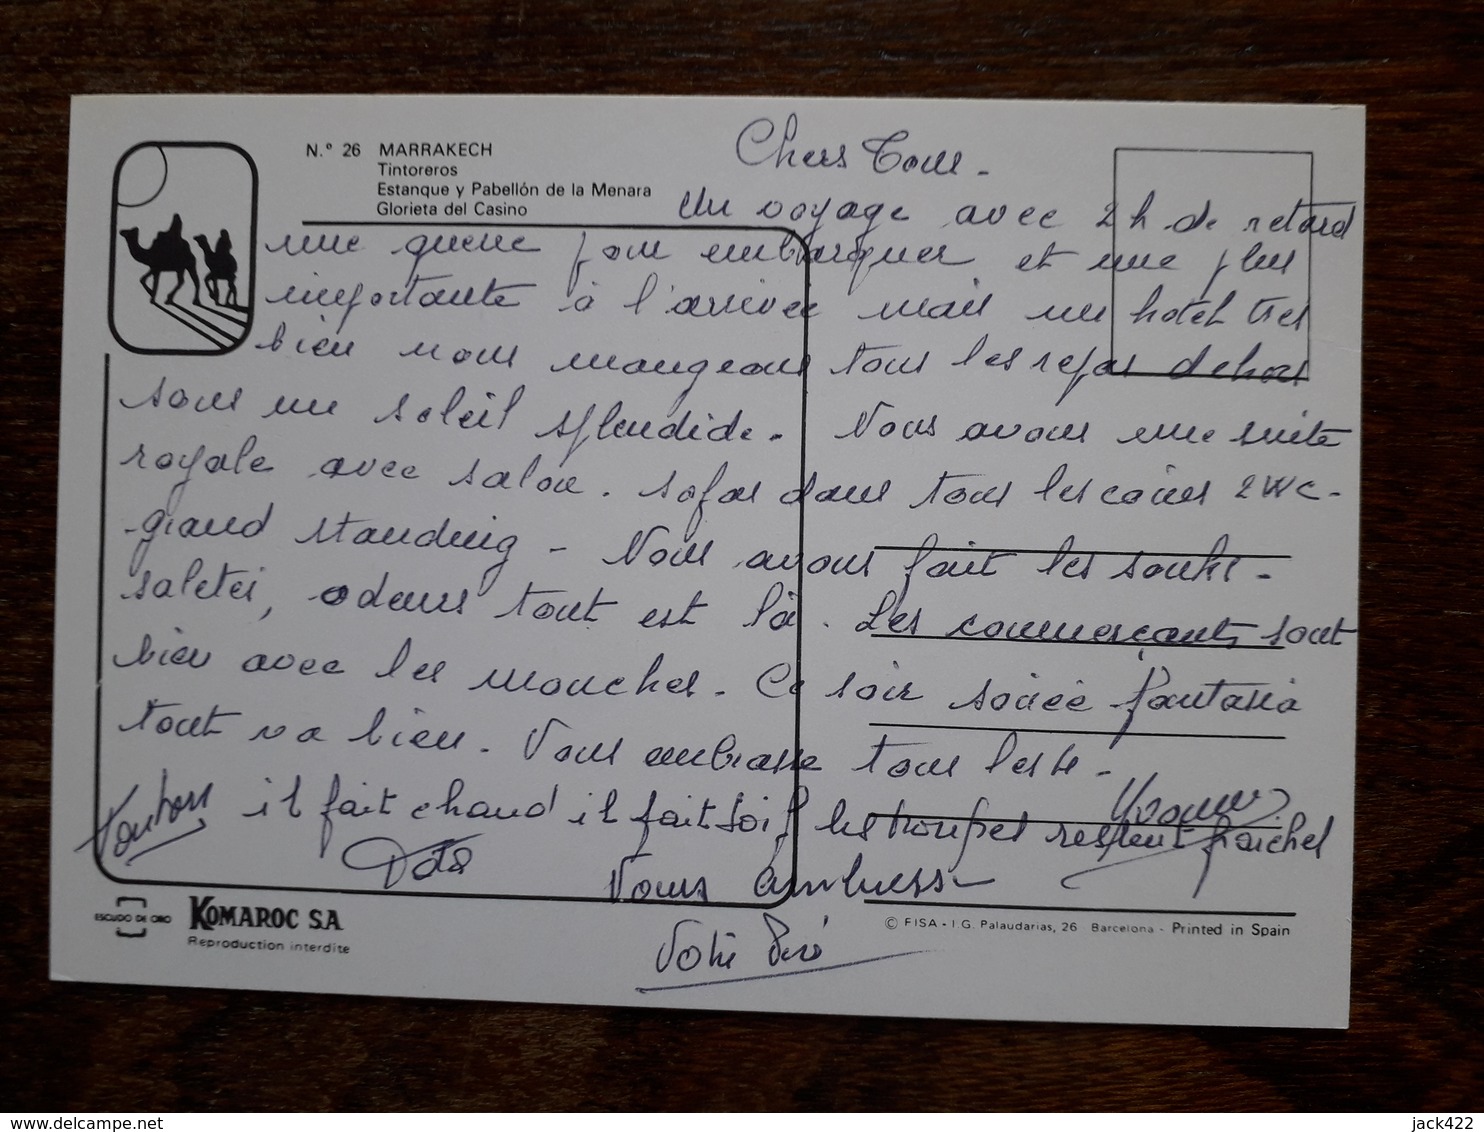 N.º 26 MARRAKECH
Tintoreros
Estanque y Pabellón de la Menara
Glorieta del Casino
Chers Tous -
Un voyage avec 2 h de retard
une queue pour embarquer et une plus
importante à l'arrivée mais un hotel tres
bien nous mangeons tous les repas dehors
sous un soleil splendide - Nous avons une suite
royale avec salon. sofas dans tous les coins 2 WC -
grand standing - Nous avons fait les souks -
saletés, odeurs tout est là. Les commerçants sont
bien avec les mouches. Ce soir soirée fantasia
tout va bien. Vous embrasse tous les 4 -
Yvonne
il fait chaud il fait soif les troupes restent fraiches
Vous embrass
Votre Père
ESCUDO DE ORO
KOMAROC S.A.
Reproduction interdite
© FISA - I G. Palaudarias, 26 Barcelona - Printed in Spain
delcampe.net
jack422